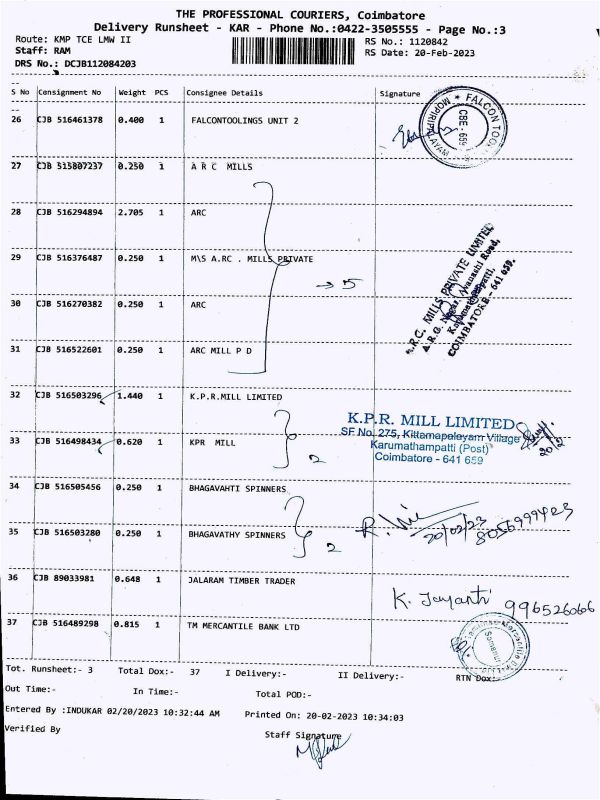 THE PROFESSIONAL COURIERS, Coimbatore
Delivery Runsheet - KAR - Phone No.:0422-3505555 - Page No.:3
Route: KMP TCE LMW II RS No.: 1120842
Staff: RAM RS Date: 20-Feb-2023
DRS No.: DCJB112084203
S No Consignment No Weight PCS Consignee Details Signature
26 CJB 516461378 0.400 1 FALCONTOOLINGS UNIT 2
FALCON TOO
CBE - 659
MOPIRIPALAYAM
27 CJB 515807237 0.250 1 A R C MILLS
28 CJB 516294894 2.705 1 ARC
29 CJB 516376487 0.250 1 M\S A.RC . MILLS PRIVATE
→ 5
A.R.C. MILLS PRIVATE LIMITED
A.R.G. Nagar, Avanashi Road,
Karumathampatti,
COIMBATORE - 641 659.
30 CJB 516270382 0.250 1 ARC
31 CJB 516522601 0.250 1 ARC MILL P D
32 CJB 516503296 1.440 1 K.P.R.MILL LIMITED
33 CJB 516498434 0.620 1 KPR MILL
2
K.P.R. MILL LIMITED
SF No. 275, Kittampalayam Village
Karumathampatti (Post)
Coimbatore - 641 659
34 CJB 516505456 0.250 1 BHAGAVAHTI SPINNERS
35 CJB 516503280 0.250 1 BHAGAVATHY SPINNERS
2
20/02/23
8056999423
36 CJB 89033981 0.648 1 JALARAM TIMBER TRADER
K. Jayanthi 996526066
37 CJB 516489298 0.815 1 TM MERCANTILE BANK LTD
Somanur
Tot. Runsheet:- 3 Total Dox:- 37 I Delivery:- II Delivery:- RTN Dox:-
Out Time:- In Time:- Total POD:-
Entered By :INDUKAR 02/20/2023 10:32:44 AM Printed On: 20-02-2023 10:34:03
Verified By Staff Signature